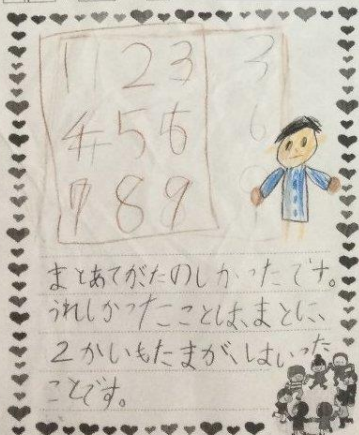 1 2 3 3
4 5 6 6
7 8 9 9
まとあてがたのしかったです。
うれしかったことは、まとに、
2かいもたまが、はいった
ことです。